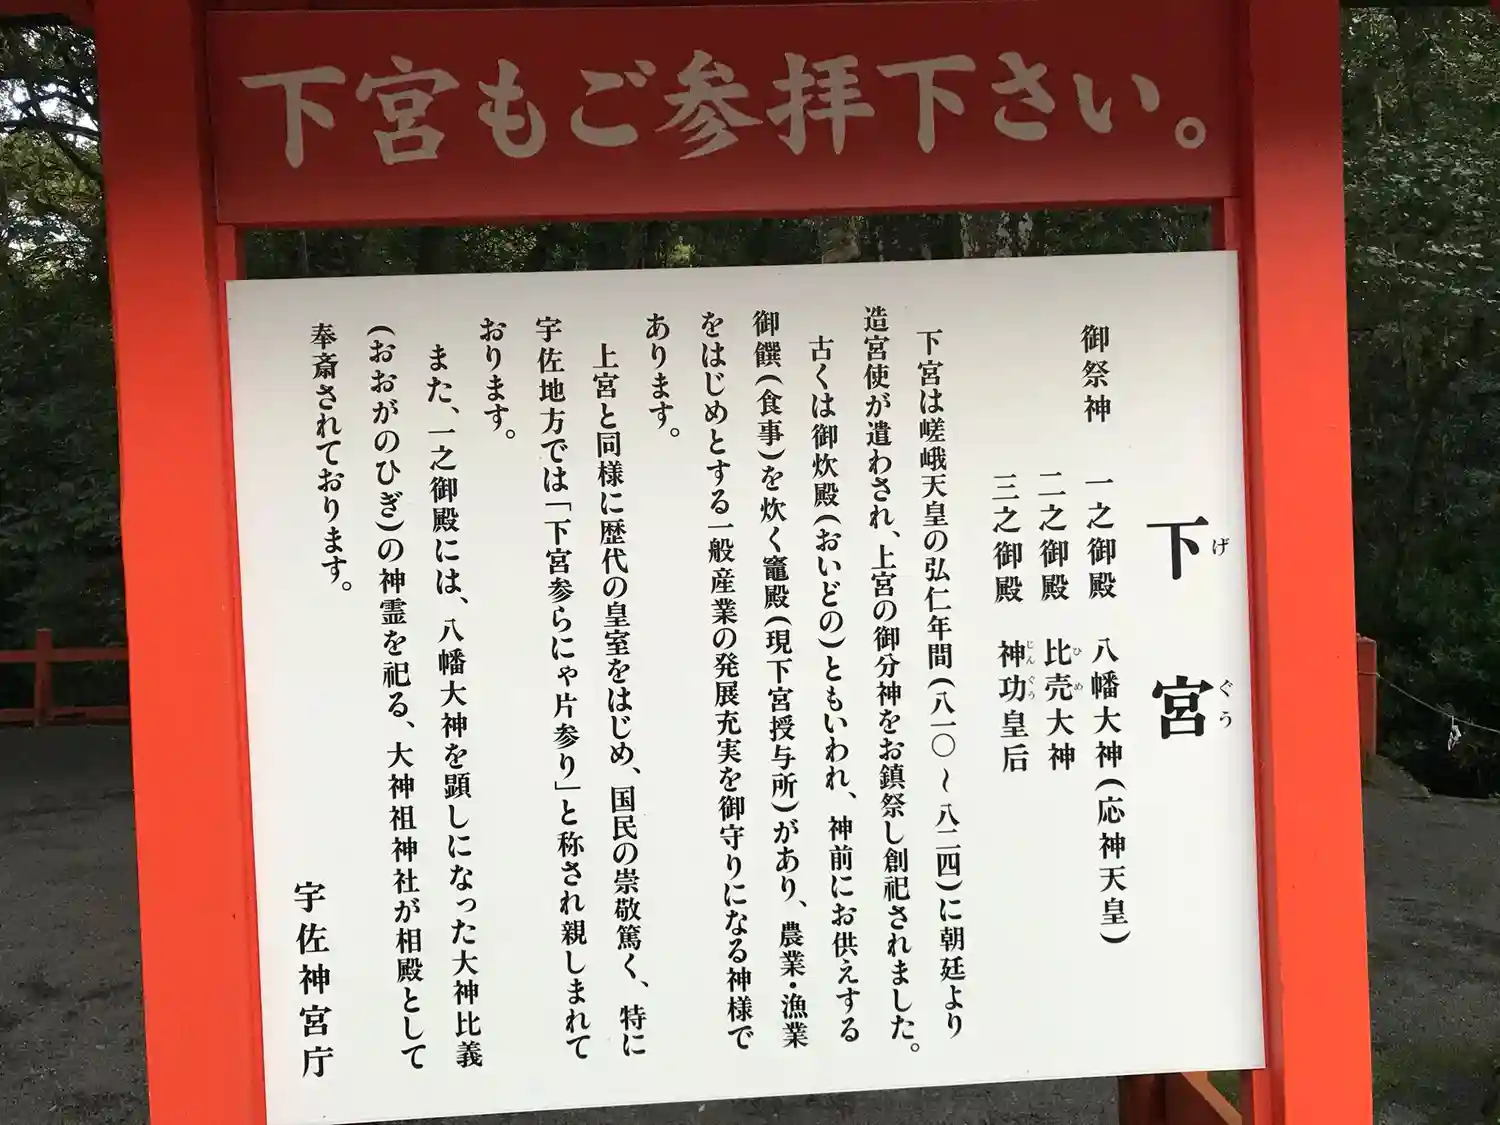 下宮もご参拝下さい。
下宮
げぐう
御祭神 一之御殿 八幡大神(応神天皇)
二之御殿 比売大神
ひめ
三之御殿 神功皇后
じんぐう
下宮は嵯峨天皇の弘仁年間(八一〇~八二四)に朝廷より
造宮使が遣わされ、上宮の御分神をお鎮祭し創祀されました。
古くは御炊殿(おいどの)ともいわれ、神前にお供えする
御饌(食事)を炊く竈殿(現下宮授与所)があり、農業・漁業
をはじめとする一般産業の発展充実を御守りになる神様で
あります。
上宮と同様に歴代の皇室をはじめ、国民の崇敬篤く、特に
宇佐地方では「下宮参らにゃ片参り」と称され親しまれて
おります。
また、一之御殿には、八幡大神を顕しになった大神比義
(おおがのひぎ)の神霊を祀る、大神祖神社が相殿として
奉斎されております。
宇佐神宮庁